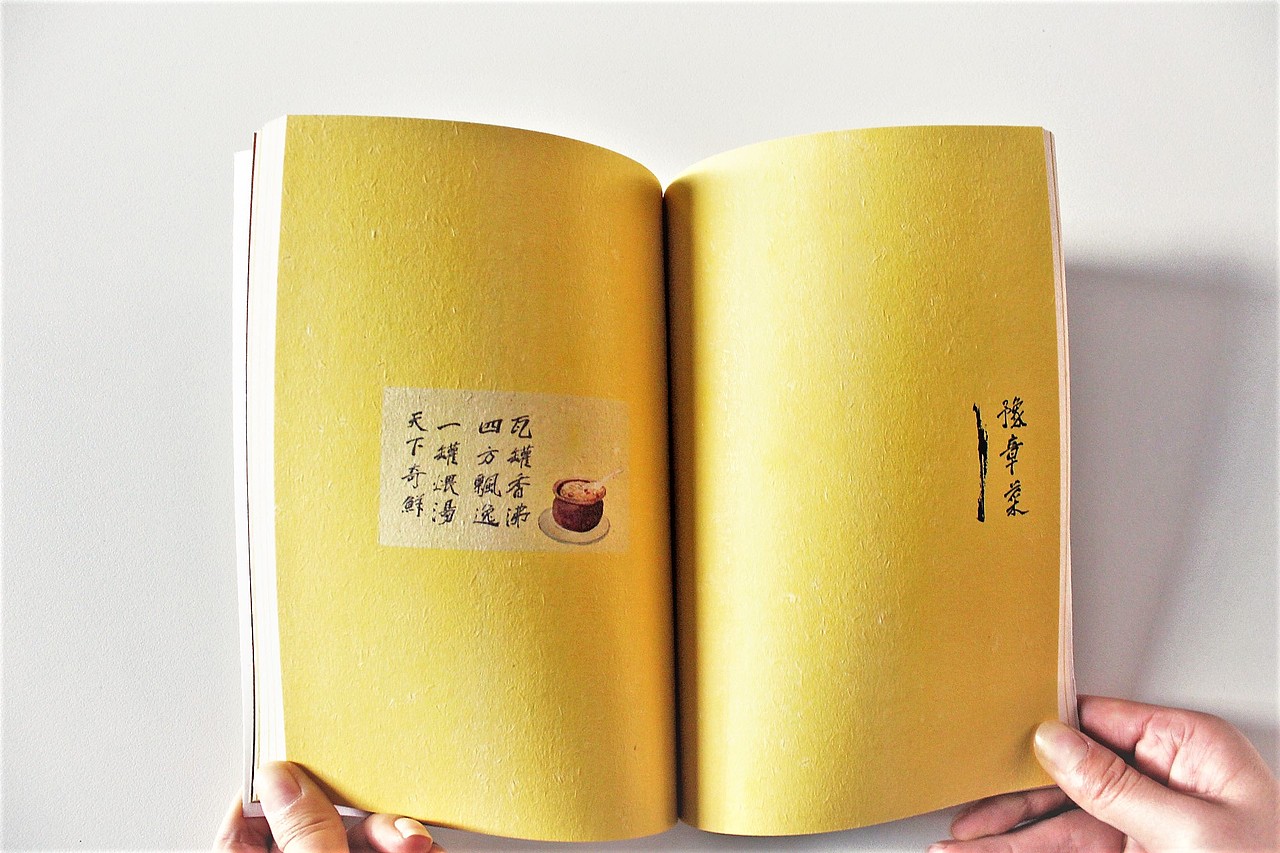 豫章菜
瓦罐香沸
四方飄逸
一罐煨湯
天下奇鮮